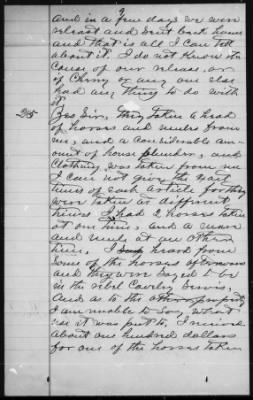 9
and in a few days we were
released and sent back home
and that is all I can tell
about it. I do not know the
cause of our release, or
if Cherry or any one else
had any thing to do with
it.
25 Yes Sir, they taken 4 head
of horses and mules from
me, and a considerable am-
ount of house plunder, and
clothing was taken from me
I can not give the exact
times of each article for they
were taken at different
times. I had 2 horses taken
at one time, and a mare
and mule at an other
time. I heard from
some of the horses afterwards
and they were said to be
in the rebel Cavalry service,
and as to the other property
I am unable to say, what
use it was put to, I received
about one hundred dollars
for one of the horses taken